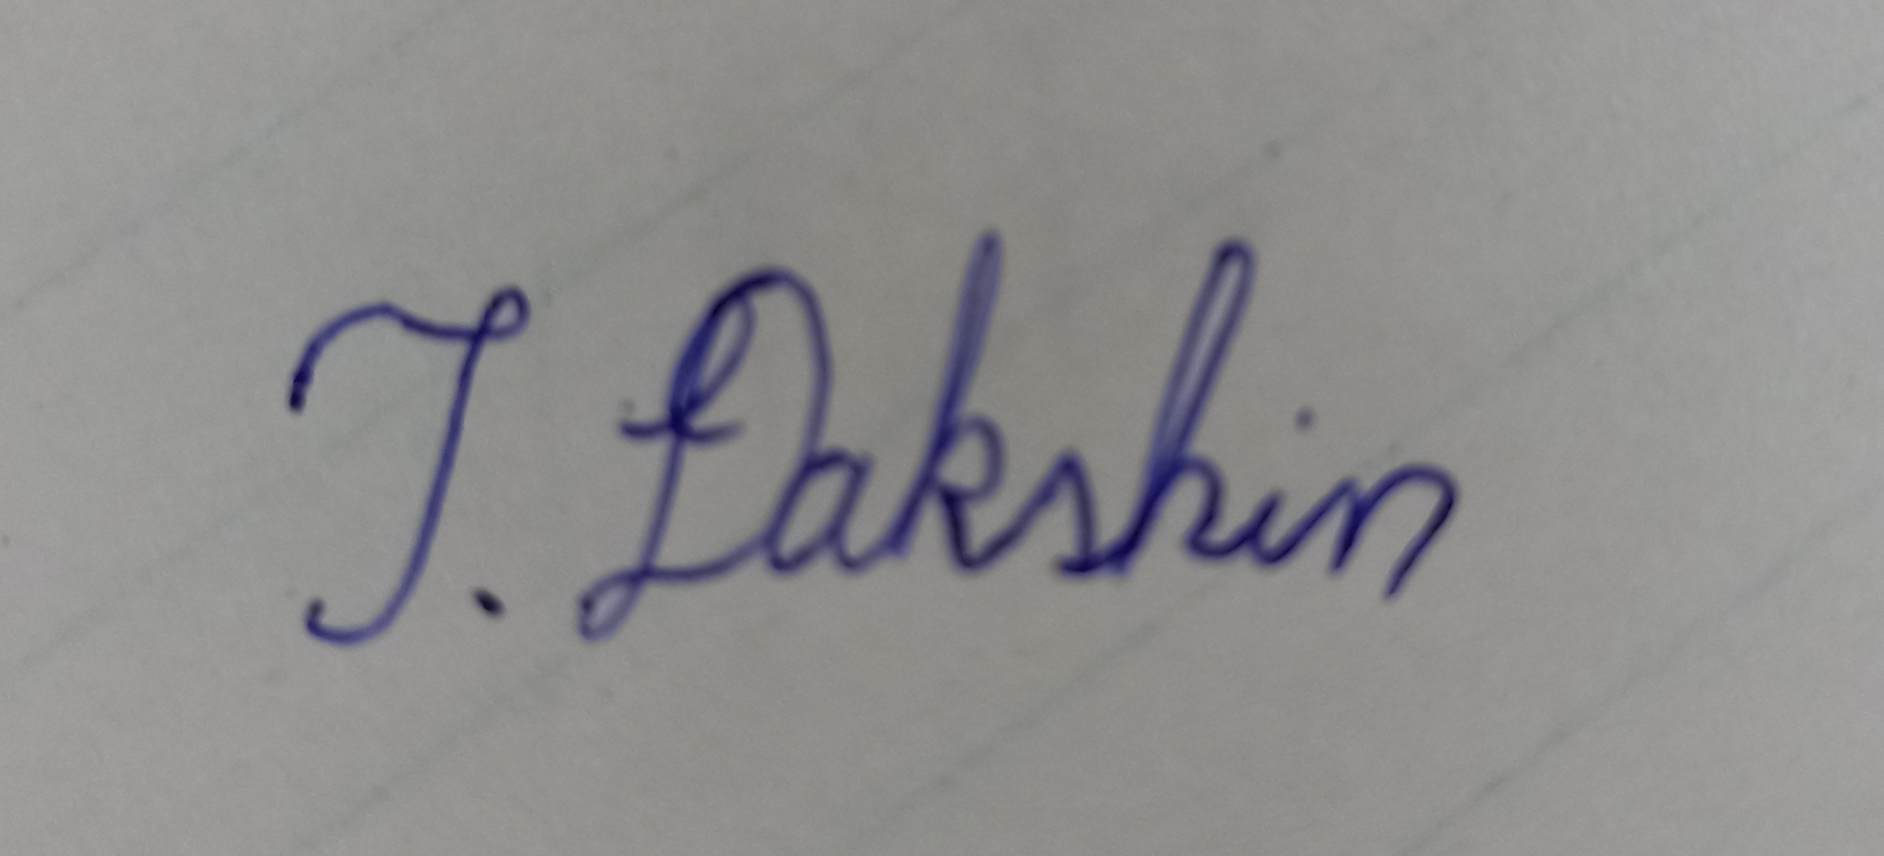 T. Dakshin